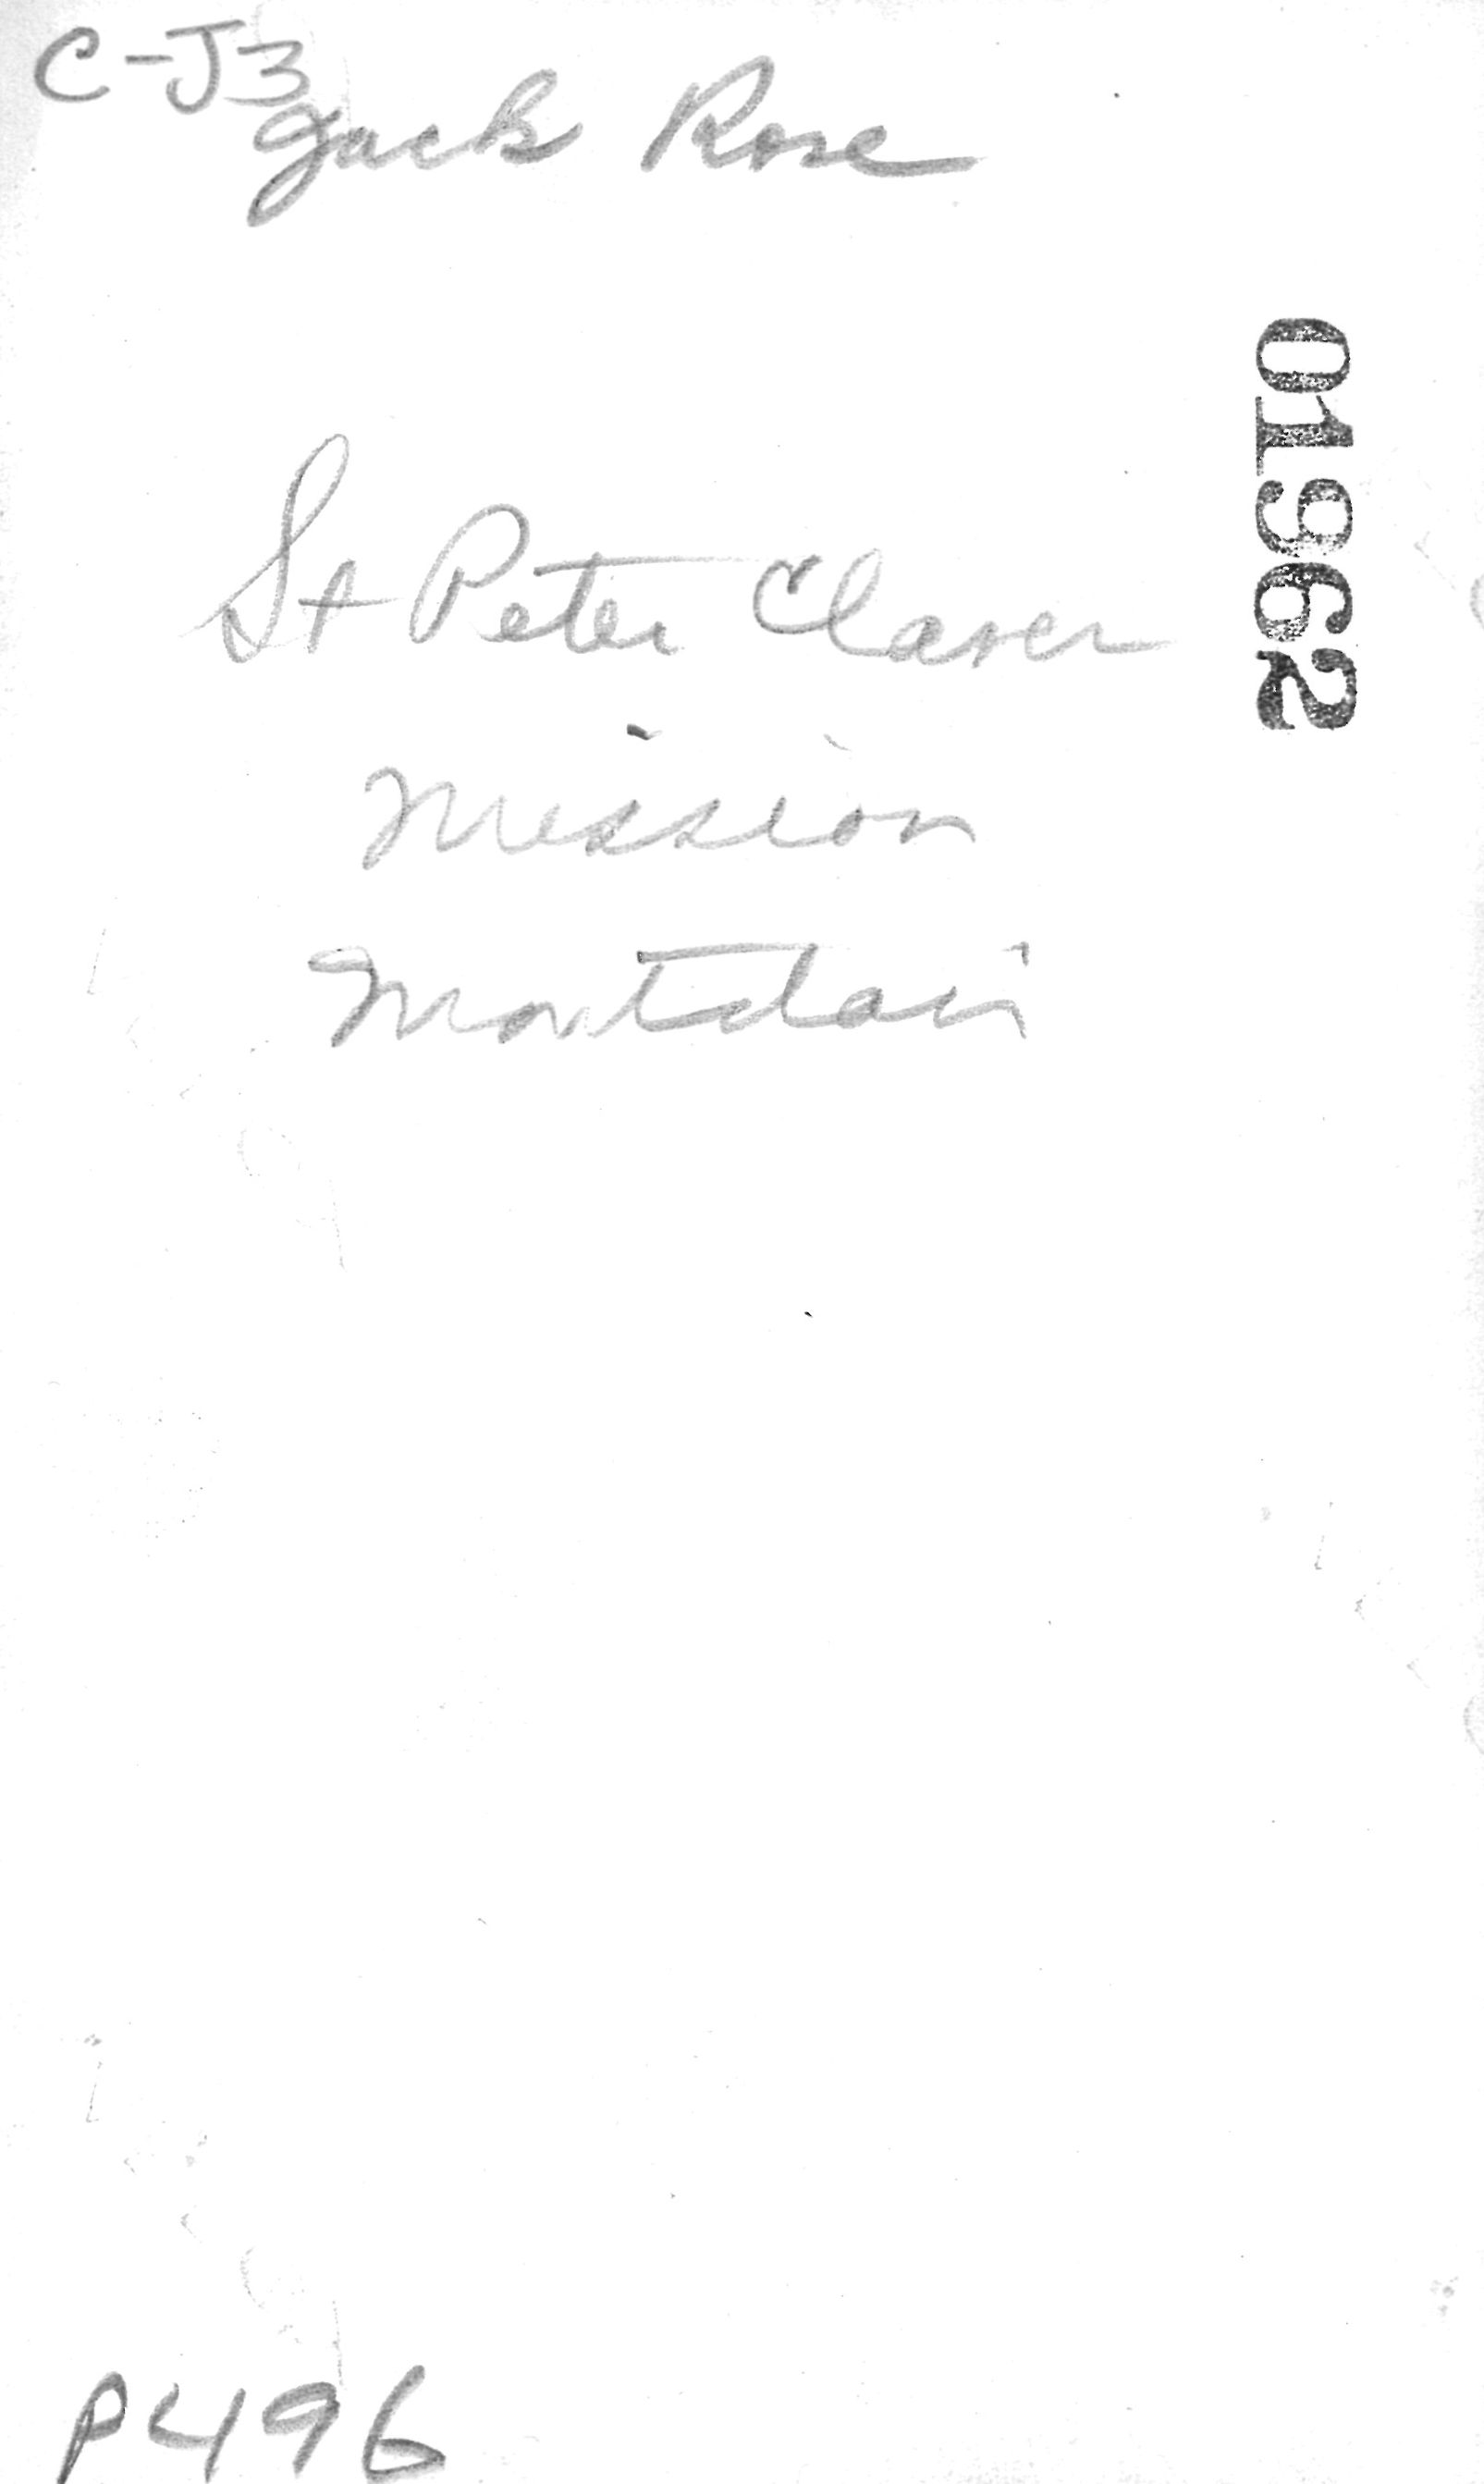 C-J3
Jack Rose
01962
St Peter Claver
Mission
Montclair
P496